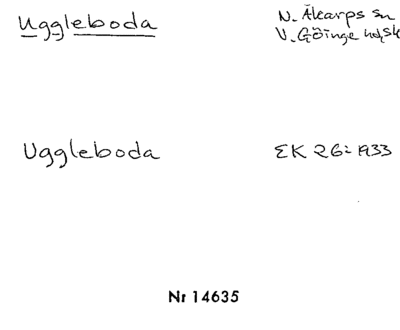 Uggleboda N. Åkarps sn
V. Göinge hd, sk
Uggleboda EK 26: 1933
Nr 14635